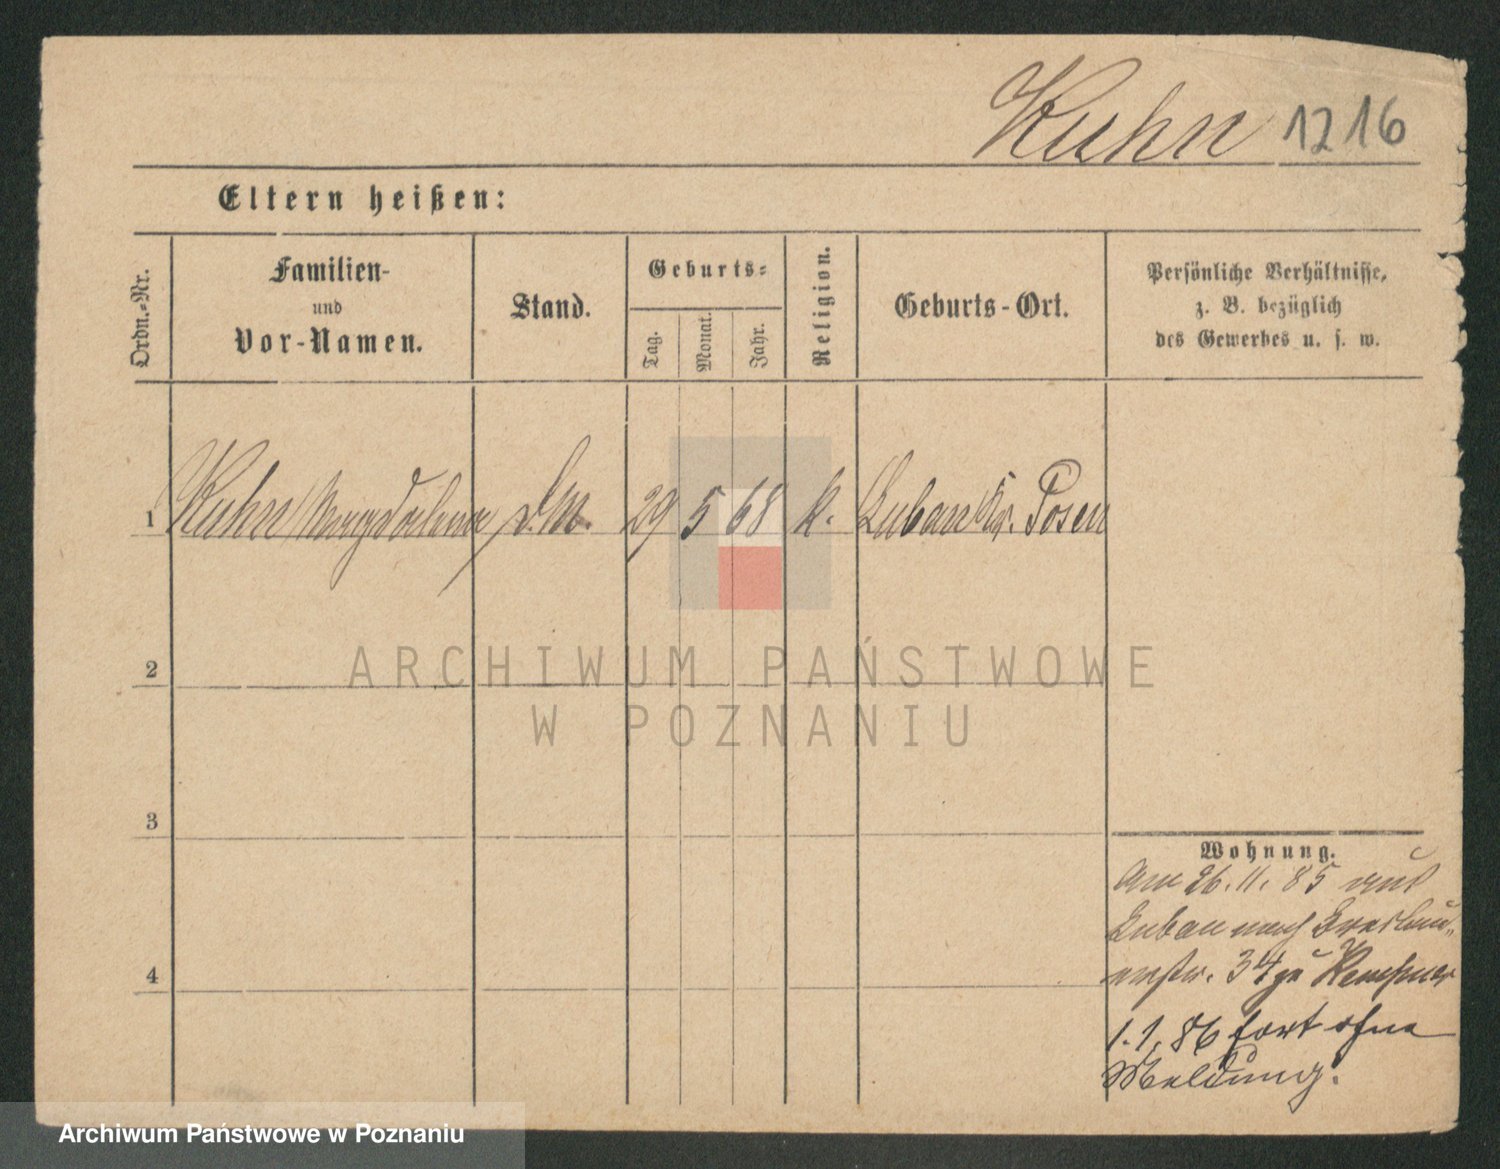 Kuhn 1216
Eltern heißen:
Ordn.-Nr.
Familien-
und
Vor-Namen.
Stand.
Geburts-
Tag.
Monat.
Jahr.
Religion.
Geburts-Ort.
Persönliche Verhältnisse,
z. B. bezüglich
des Gewerbes u. s. w.
1 Kuhn Magdalena d. M. 29 5 68 k. Luban Kr. Posen
2
3
4
ARCHIWUM PAŃSTWOWE
W POZNANIU
Wohnung.
Am 26.11.85 aus
Luban nach Breslau-
erstr. 34 zu Kempner
1.1.86 fort ohne
Meldung.
Archiwum Państwowe w Poznaniu